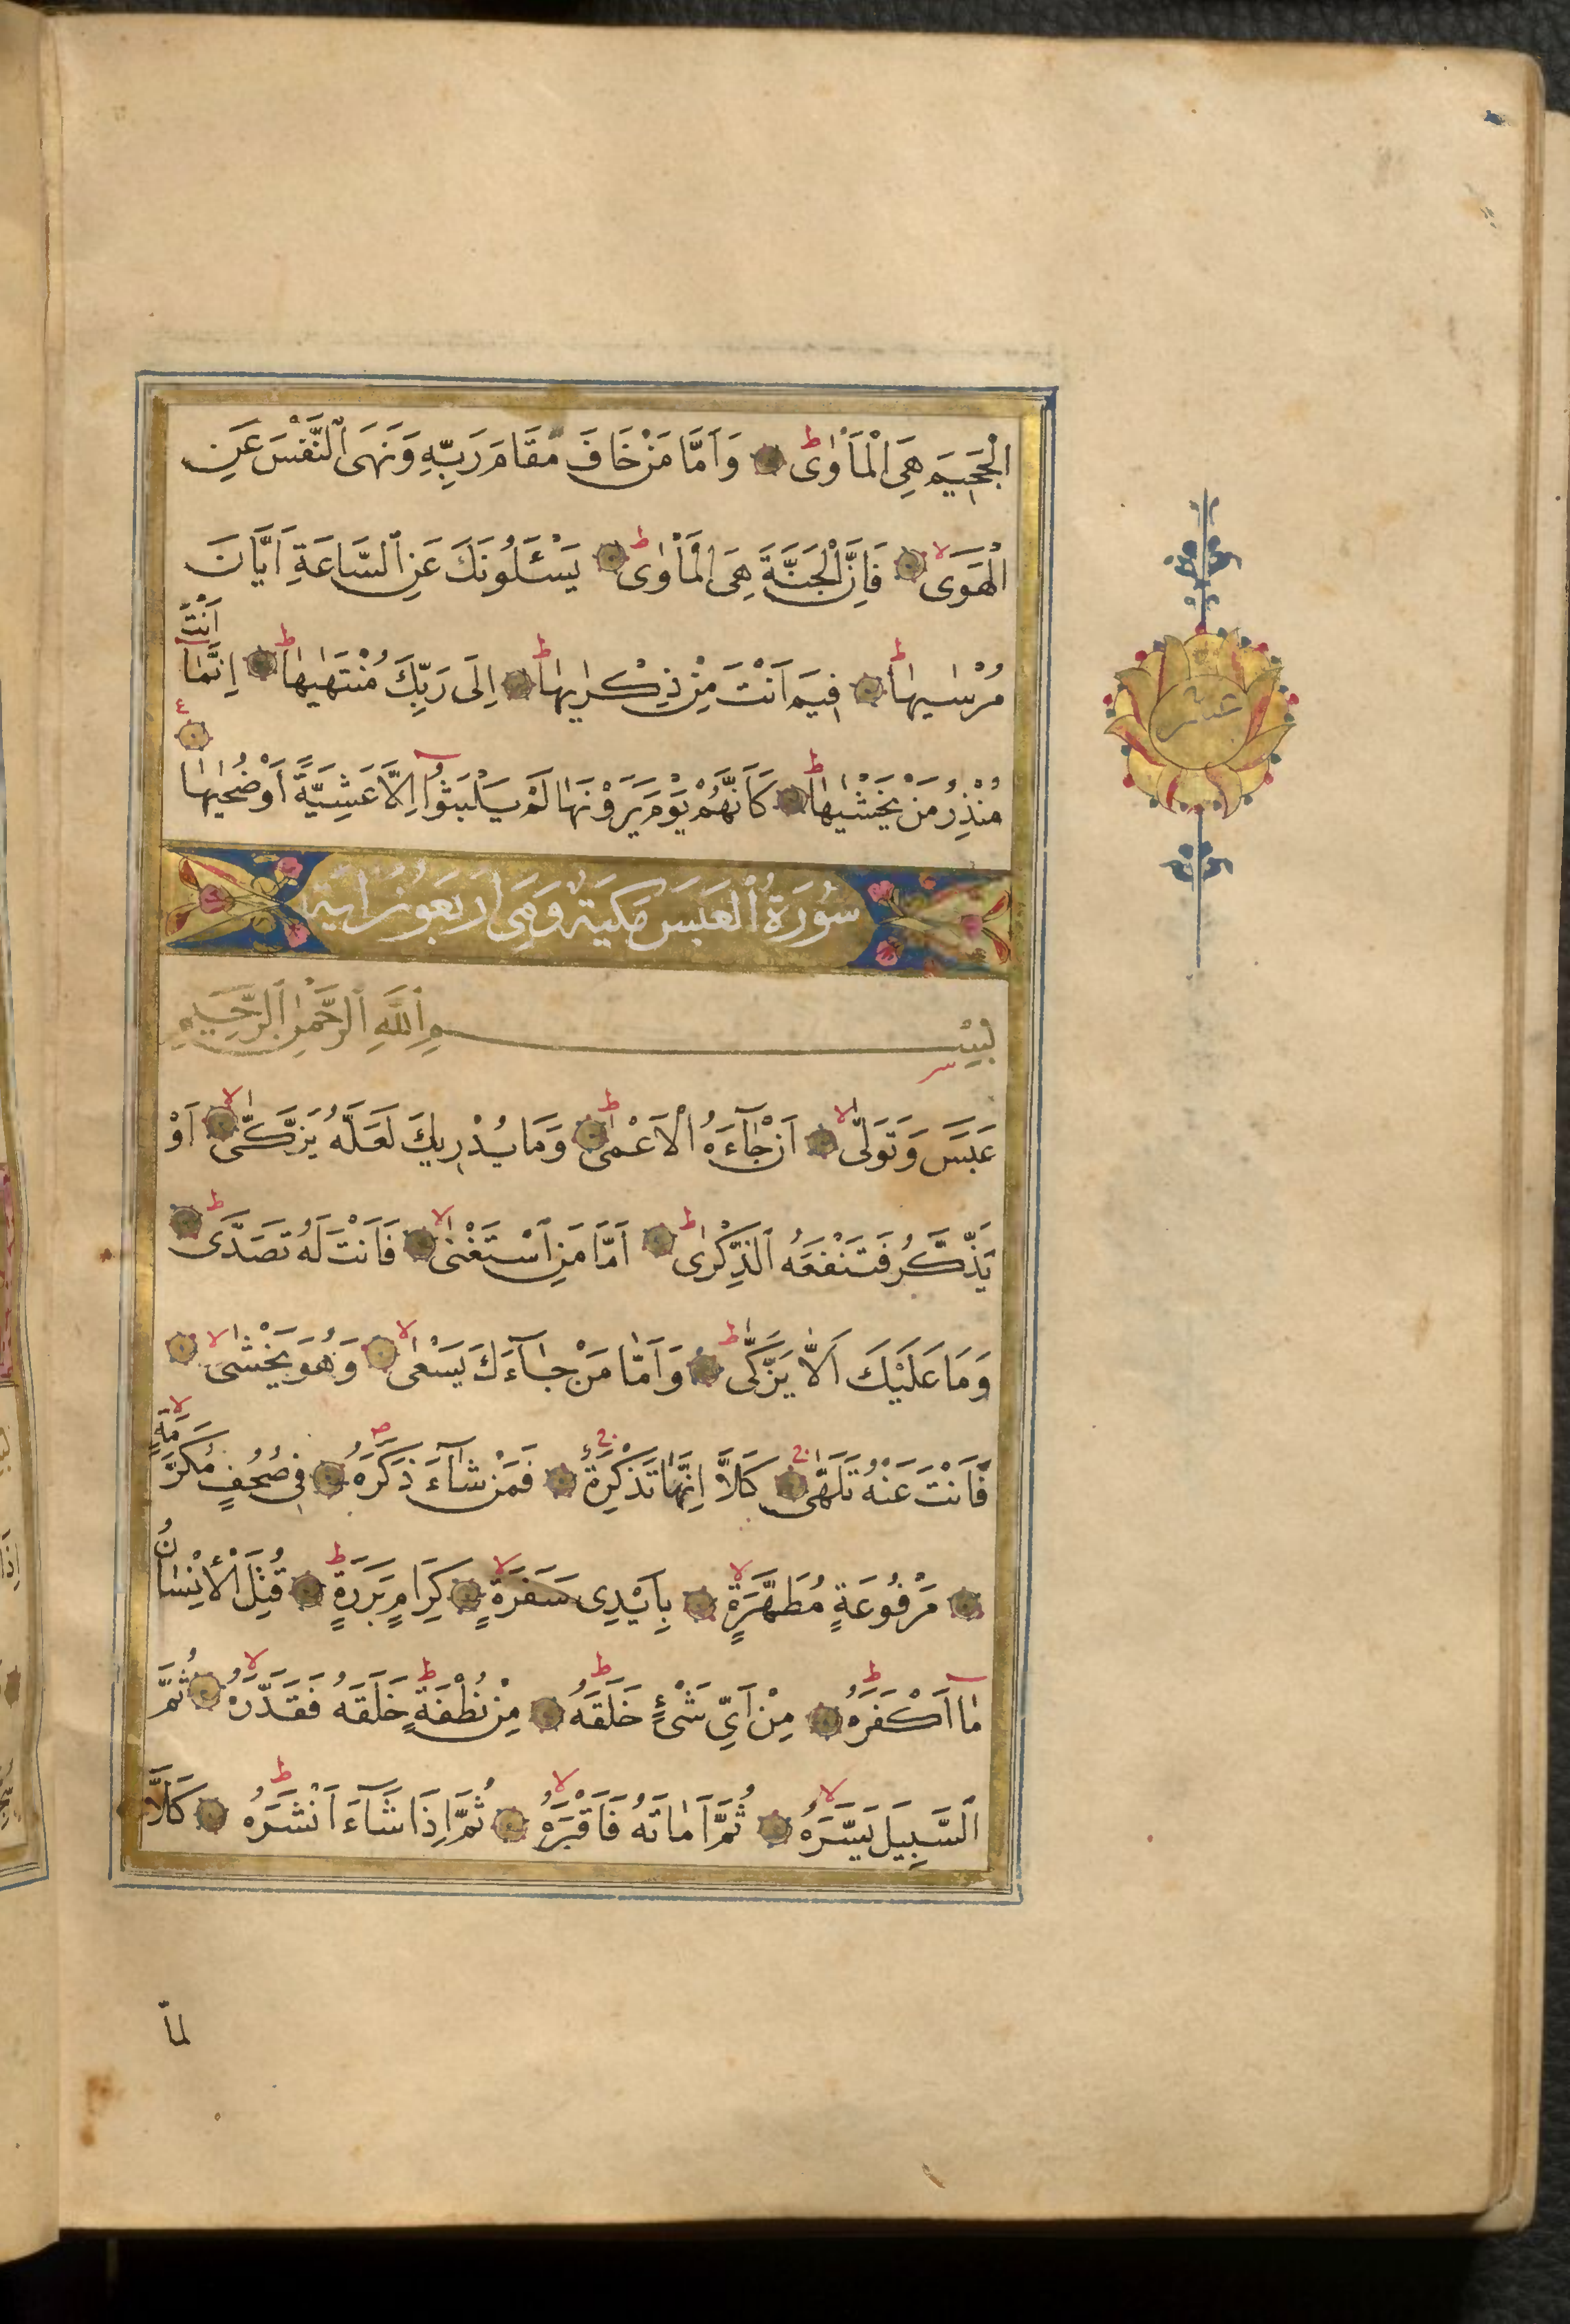 الْجَحِيمَ هِيَ الْمَأْوٰىۜ ط وَاَمَّا مَنْ خَافَ مَقَامَ رَبِّهِ وَنَهَى ٱلنَّفْسَ عَنِ
الْهَوَىۙ لا فَاِنَّ الْجَنَّةَ هِيَ الْمَأْوٰى ط يَسْـَٔلُونَكَ عَنِ ٱلسَّاعَةِ اَيَّانَ
مُرْسٰيهَا ط فِيمَ اَنْتَ مِنْ ذِكْرٰيهَا ط اِلَى رَبِّكَ مُنْتَهٰيهَا ط اِنَّمَٓا اَنْتَ
مُنْذِرُ مَنْ يَخْشٰيهَا ط كَاَنَّهُمْ يَوْمَ يَرَوْنَهَا لَمْ يَلْبَثُٓوا اِلَّا عَشِيَّةً اَوْ ضُحٰيهَا ع
عشر
سُورَةُ ٱلْعَبَسَ مَكِّيَةٌ وَهِيَ اَرْبَعُونَ اٰيَةً
بِسْمِ ٱللَّهِ ٱلرَّحْمٰنِ ٱلرَّحِيمِ
عَبَسَ وَتَوَلّٰى لا اَنْ جَٓاءَهُ الْاَعْمٰى ط وَمَا يُدْرِيكَ لَعَلَّهُ يَزَّكّٰى لا اَوْ
يَذَّكَّرُ فَتَنْفَعَهُ ٱلذِّكْرٰى ط اَمَّا مَنِ ٱسْتَغْنٰى لا فَاَنْتَ لَهُ تَصَدَّى ط
وَمَا عَلَيْكَ اَلَّا يَزَّكّٰى ط وَاَمَّا مَنْ جَٓاءَكَ يَسْعٰى لا وَهُوَ يَخْشٰى لا
فَاَنْتَ عَنْهُ تَلَهّٰى ج كَلَّا اِنَّهَا تَذْكِرَةٌ ج فَمَنْ شَٓاءَ ذَكَرَهُ ص فِي صُحُفٍ مُكَرَّمَةٍ لا
مَرْفُوعَةٍ مُطَهَّرَةٍ لا بِاَيْدِى سَفَرَةٍ لا كِرَامٍ بَرَرَةٍ ط قُتِلَ الْاِنْسَانُ
مَٓا اَكْفَرَهُ ط مِنْ اَيِّ شَىْءٍ خَلَقَهُ ط مِنْ نُطْفَةٍ ط خَلَقَهُ فَقَدَّرَهُ لا ثُمَّ
ٱلسَّبِيلَ يَسَّرَهُ لا ثُمَّ اَمَاتَهُ فَاَقْبَرَهُ لا ثُمَّ اِذَا شَٓاءَ اَنْشَرَهُ ط كَلَّا
لمّا